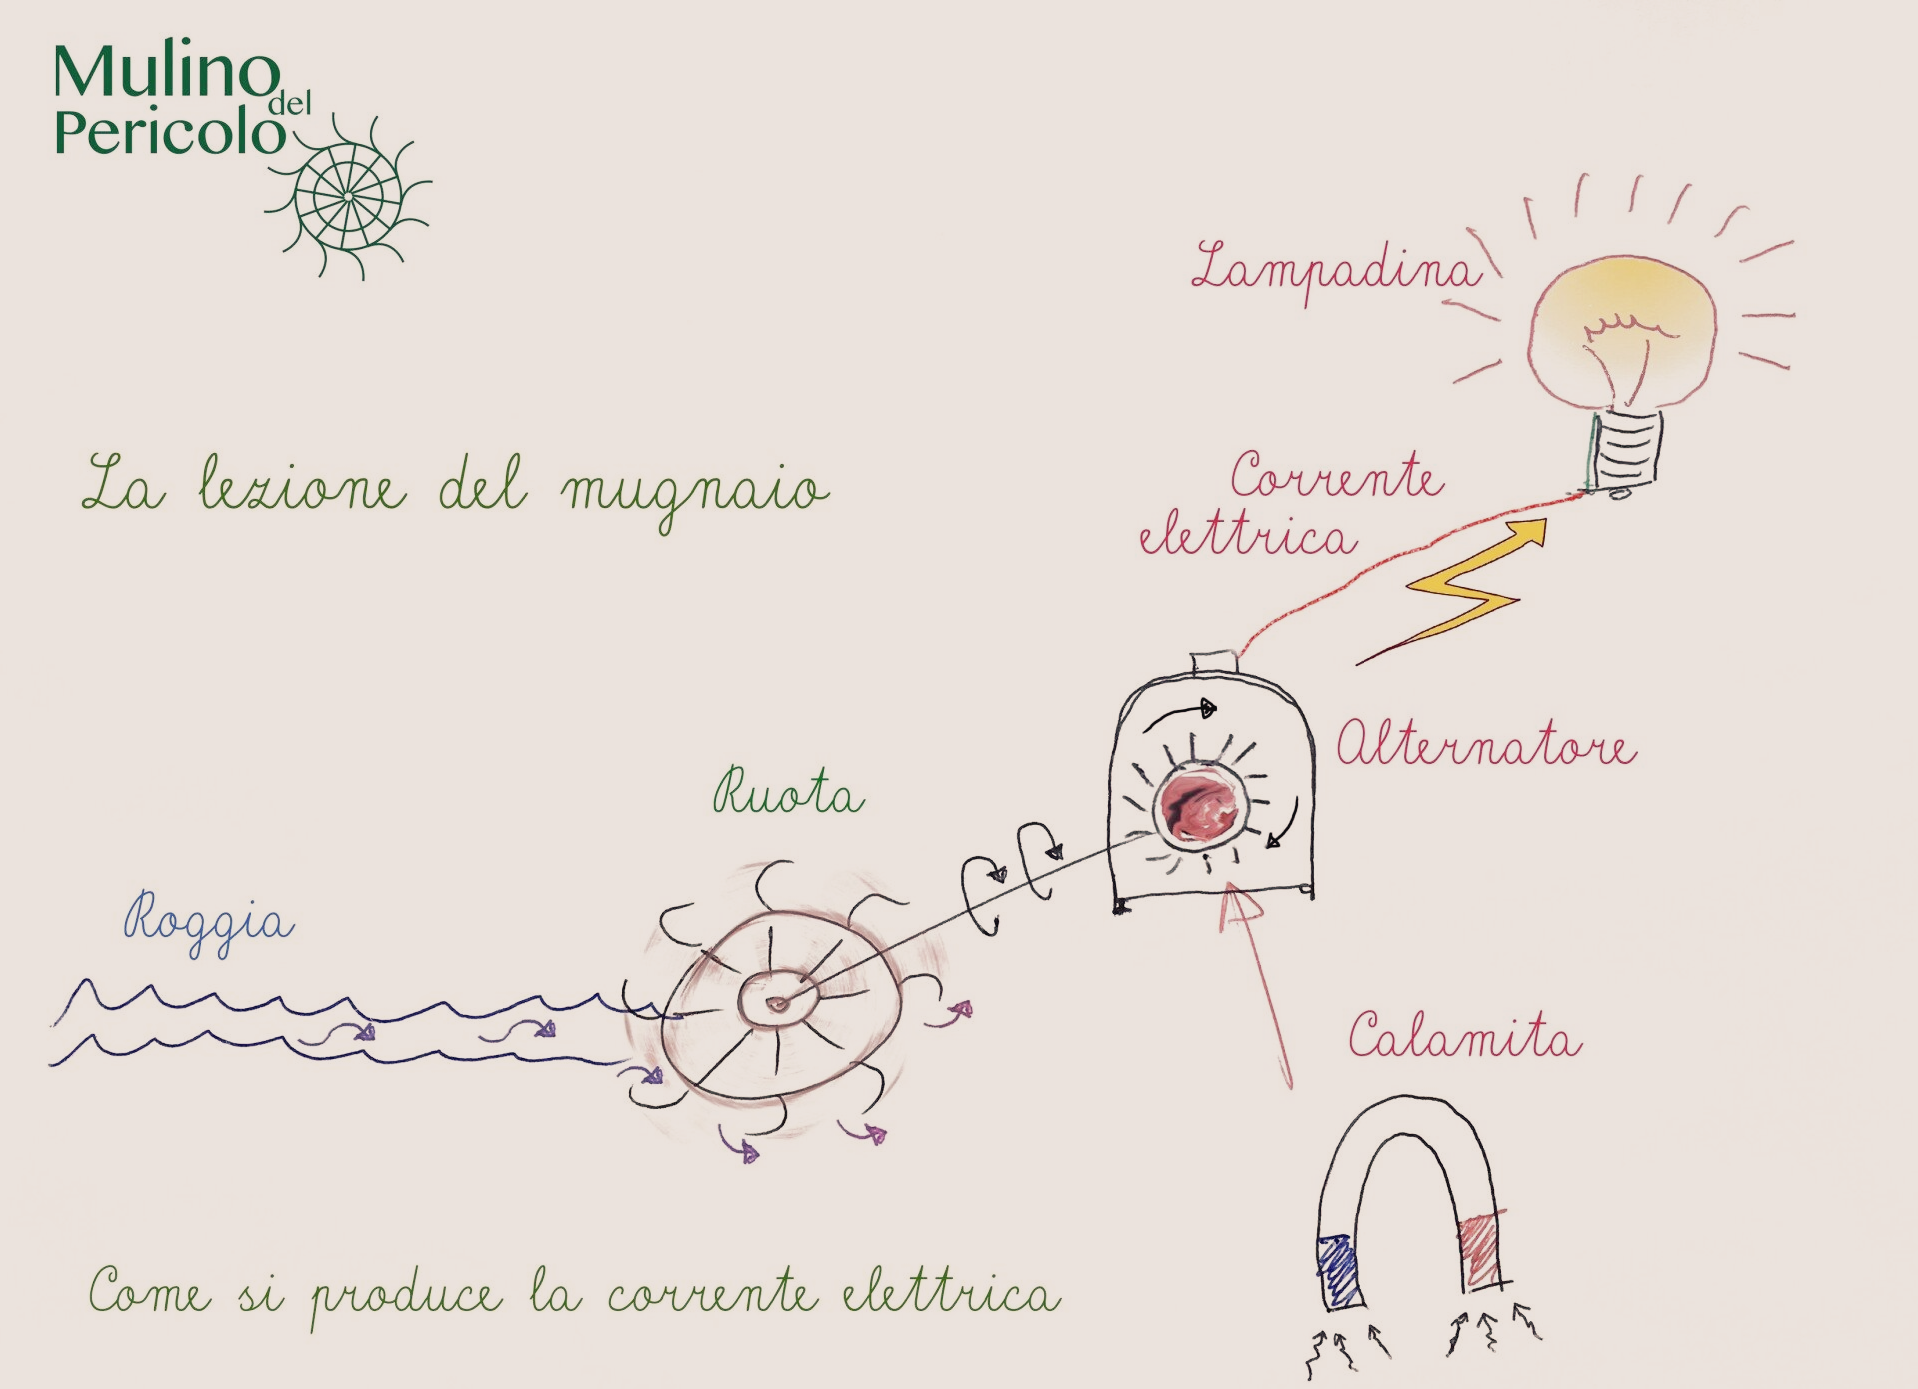 Mulino
del
Pericolo
Lampadina
La lezione del mugnaio
Corrente
elettrica
Alternatore
Ruota
Roggia
Calamita
Come si produce la corrente elettrica